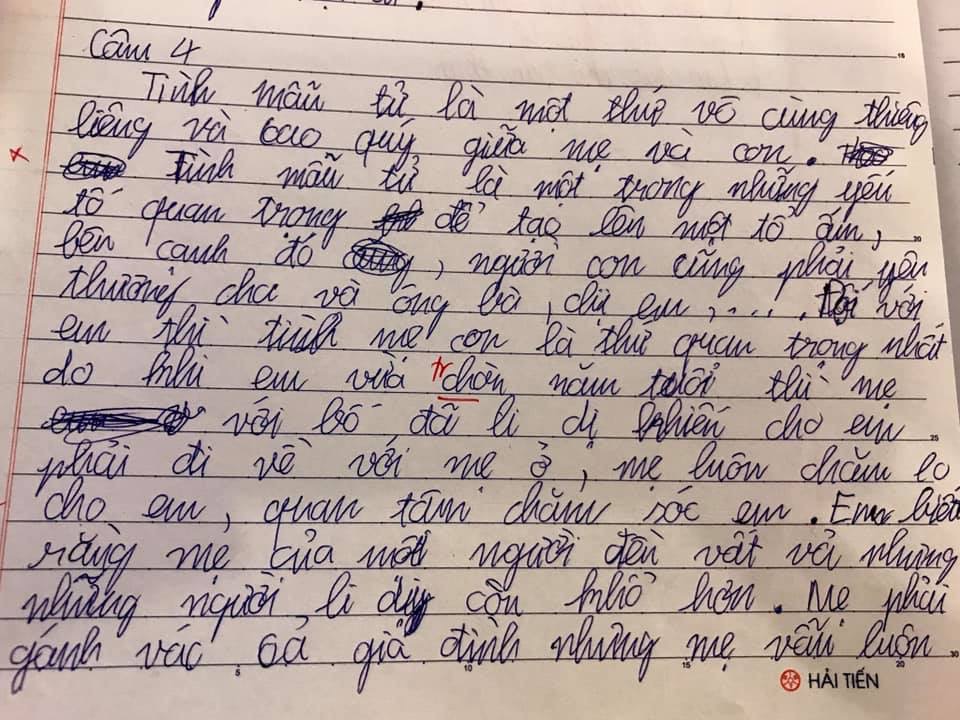 Câu 4
Tình mẫu tử là một thứ vô cùng thiêng
liêng và bao quý giữa mẹ và con.
Tình mẫu tử là một trong những yếu
tố quan trong để tạo lên một tổ ấm,
bên cạnh đó, người con cũng phải yêu
thương cha và ông bà, chị em, .... với
em thì tình mẹ con là thứ quan trọng nhất
do khi em vừa tr chòn năm tuổi thì mẹ
với bố đã li dị khiến cho em
phải đi về với mẹ ở, mẹ luôn chăm lo
cho em, quan tâm chăm sóc em. Em biết
rằng mẹ của một người đều vất vả nhưng
những người li dị còn khổ hơn. Mẹ phải
gánh vác cả gia đình nhưng mẹ vẫn luôn
HẢI TIẾN
5
10
15
20
15
20
25
30